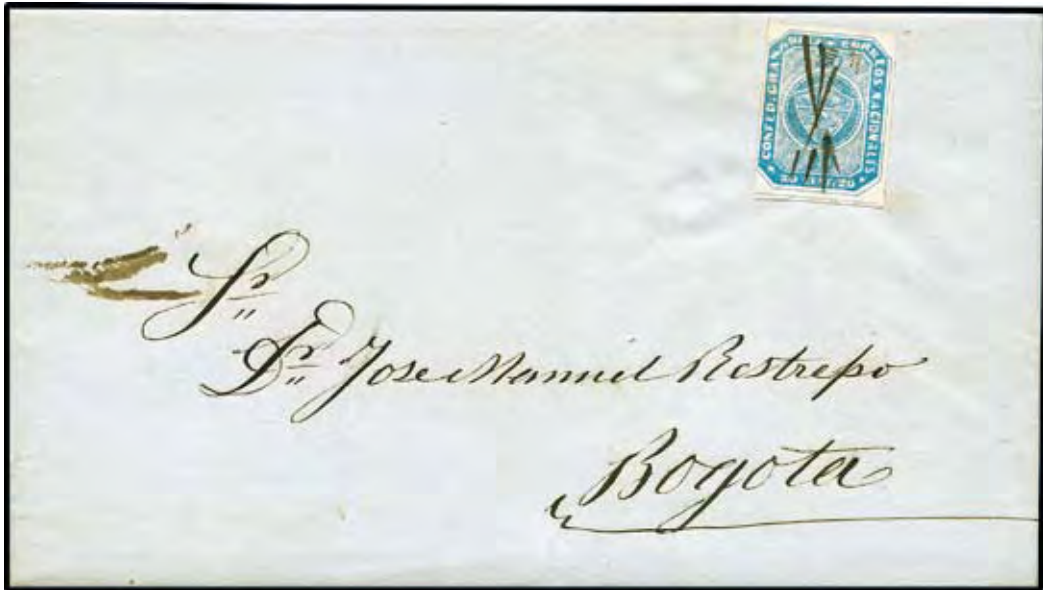 CONFED. GRANADINA CORREOS NACIONALES
Sr
Dr Jose Manuel Restrepo
Bogota